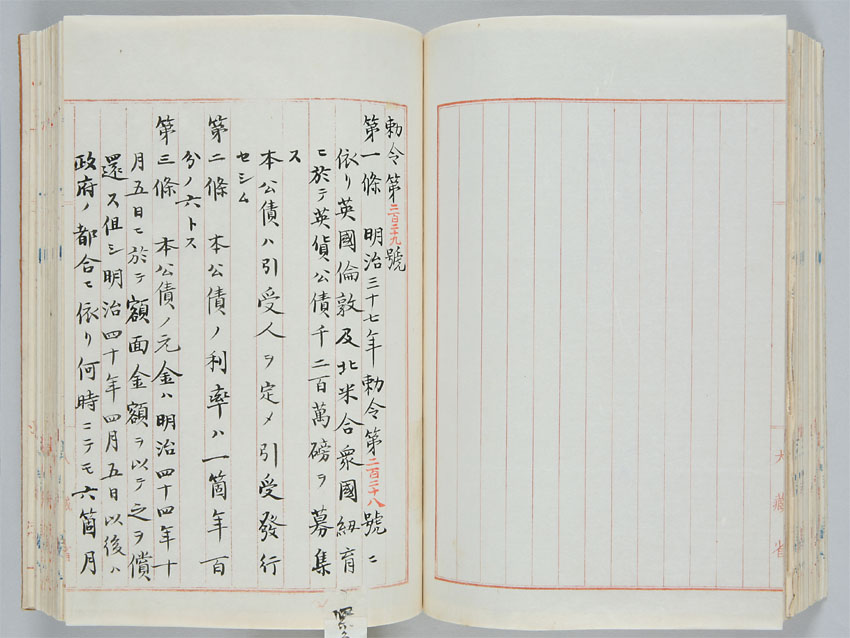 大藏省
勅令第二百二十九號
第一條　明治三十七年勅令第二百二十八號ニ
依リ英國倫敦及北米合衆國紐育
ニ於テ英貨公債千二百萬磅ヲ募集
ス
本公債ハ引受人ヲ定メ引受發行
セシム
第二條　本公債ノ利率ハ一箇年百
分ノ六トス
第三條　本公債ノ元金ハ明治四十四年十
月五日ニ於テ額面金額ヲ以テ之ヲ償
還ス但シ明治四十年四月五日以後ハ
政府ノ都合ニ依リ何時ニテモ六箇月